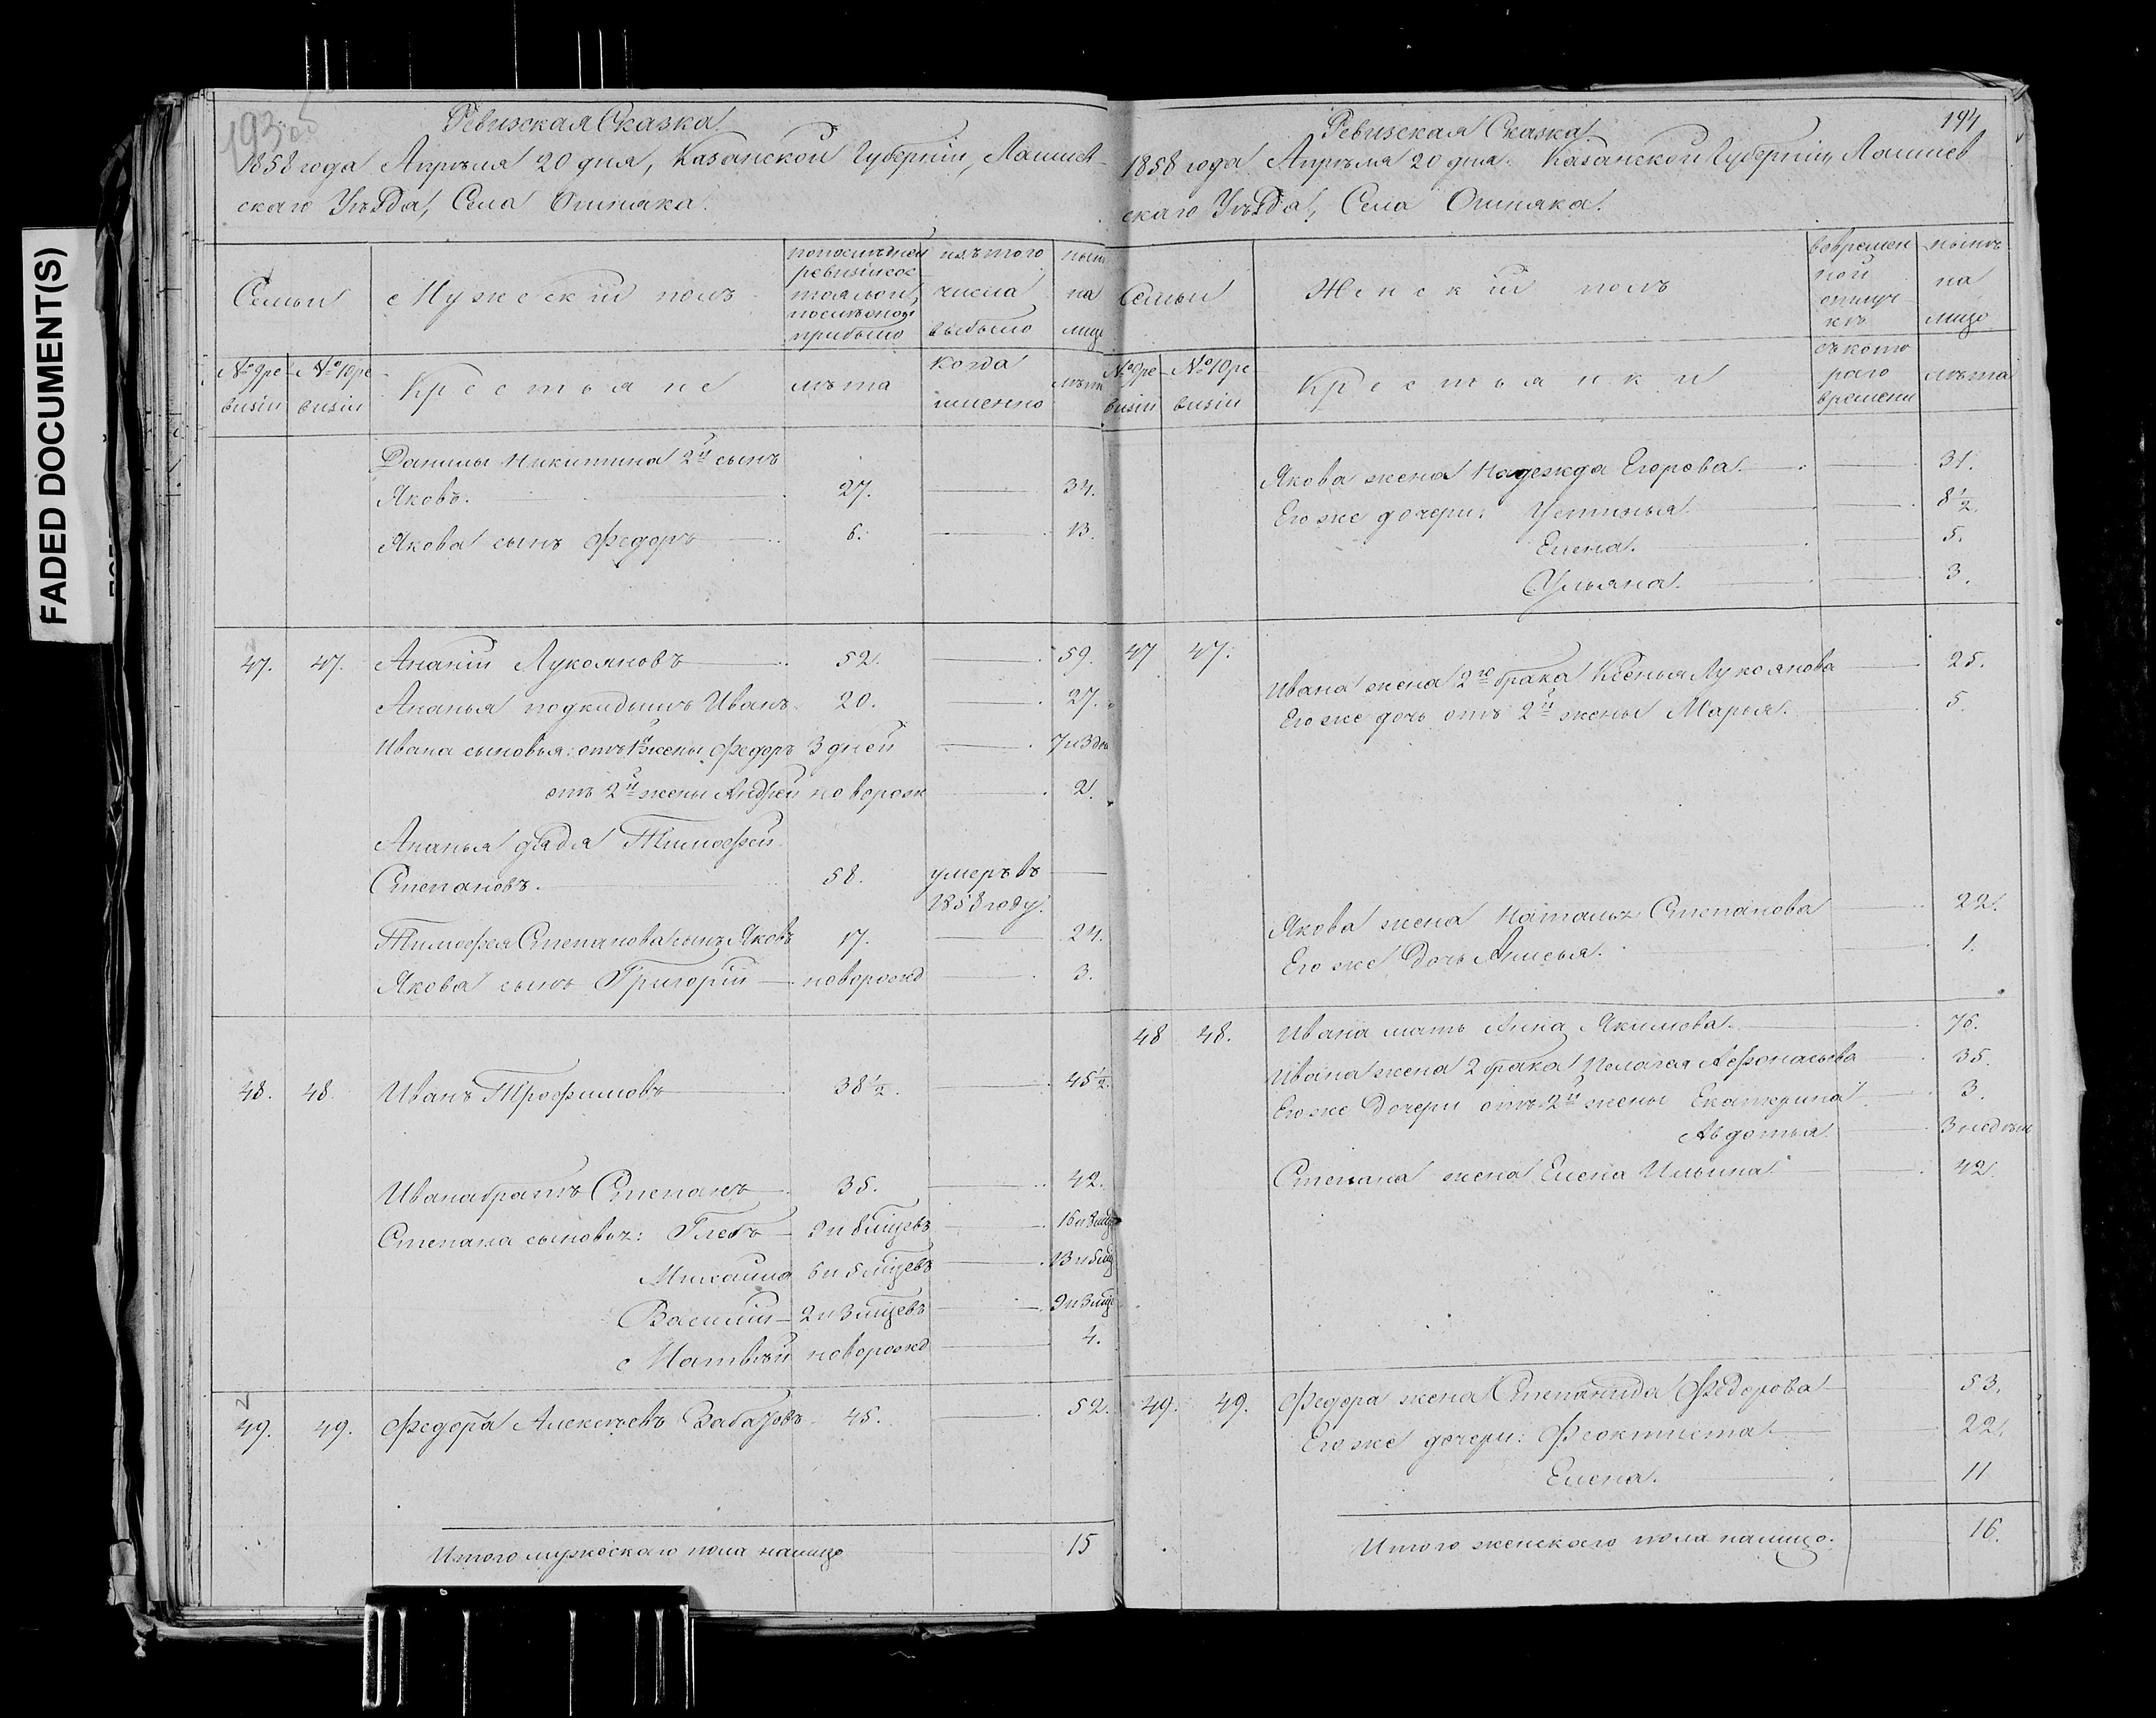 FADED DOCUMENT(S)
193 об
Ревизская Сказка
1858 года Апрѣля 20 дня, Казанской Губерніи, Лаишев-
скаго Уѣзда, Села Ошняка.
Семьи
Мужескій полъ
по послѣдней
ревизіи сос
тояло и
послѣ оной
прибыло
изъ того
числа
выбыло
ныне
на
лицо
№ 9 ре
визіи
№ 10 ре
визіи
Крестьяне
лѣта
когда
именно
лѣта
Данилы Никитина 2й сынъ
Яковъ. 27. 34.
Якова сынъ Федоръ 6. 13.
47. 47. Ананій Лукояновъ 52. 59.
Ананья подкидышъ Иванъ 20. 27.
Ивана сыновья: отъ 1й жены Федоръ 3 дней 7 и 3 дн
отъ 2й жены Андрей новорож 2.
Ананья дядя Тимофей
Степановъ. 58. умеръ въ
1853 году.
Тимофея Степанова сынъ Яковъ 17. 24.
Якова сынъ Григорій новорожд 3.
48. 48. Иванъ Трофимовъ 38 1/2. 45 1/2.
Ивана братъ Степанъ 35. 42.
Степана сыновья: Глебъ 9 и 8 мцевъ 16 и 8 мце
Михаило 6 и 5 мцевъ 13 и 5 мц
Василій 2 и 3 мцевъ 9 и 3 мце
Матвѣй новорожд 4.
49. 49. Федоръ Алексѣевъ 45. 52.
Итого мужескаго пола налицо 15
194
Ревизская Сказка
1858 года Апрѣля 20 дня. Казанской Губерніи, Лаишев
скаго Уѣзда, Села Ошняка.
Семьи
Женскій полъ
во времен
ной
отлуч
кѣ
нынѣ
на
лицо
№ 9 ре
визіи
№ 10 ре
визіи
Крестьянки
съ кото
раго
времени
лѣта
Якова жена Надежда Егорова. 31.
Его же дочери: Устинья 8 1/2.
Елена. 5.
Ульяна. 3.
47 47. Ивана жена 2го брака Ксенья Лукоянова 25.
Его же дочь отъ 2й жены Марья. 5.
Якова жена Наталья Степанова 22.
Его же дочь Анисья. 1.
48 48. Ивана мать Анна Якимова. 76.
Ивана жена 2 брака Пелагея Афонасьева 35.
Его же дочери отъ 2й жены Екатерина 3.
Авдотья. 3 недѣль
Степана жена Елена Ильина 42.
49. 49. Федора жена Степанида Федорова 53.
Его же дочери: Феоктиста 22.
Елена. 11
Итого женскаго пола налицо. 16.